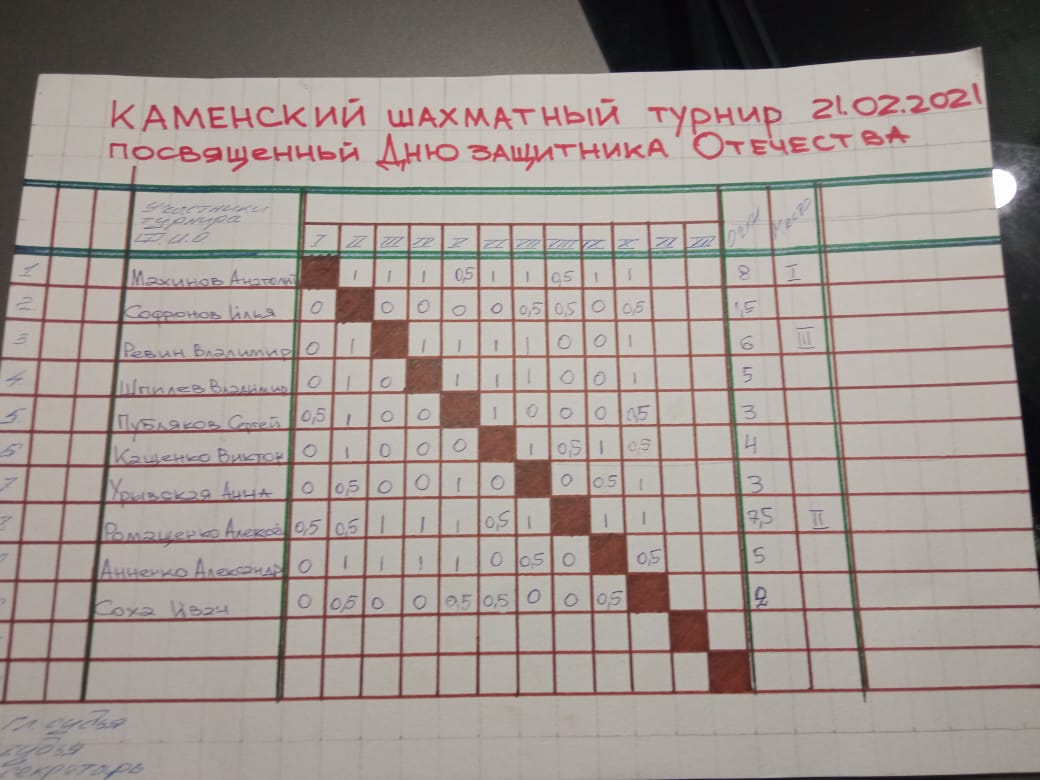 КАМЕНСКИЙ ШАХМАТНЫЙ ТУРНИР 21.02.2021
ПОСВЯЩЕННЫЙ ДНЮ ЗАЩИТНИКА ОТЕЧЕСТВА
Участники
турнира
Ф.И.О
I II III IV V VI VII VIII IX X XI XII Очки Место
1 Махинов Анатолий 1 1 1 0,5 1 1 0,5 1 1 8 I
2 Софронов Илья 0 0 0 0 0 0,5 0,5 0 0,5 1,5
3 Ревин Владимир 0 1 1 1 1 1 0 0 1 6 III
4 Шпилев Владимир 0 1 0 1 1 1 0 0 1 5
5 Публяков Сергей 0,5 1 0 0 1 0 0 0 0,5 3
6 Кащенко Виктор 0 1 0 0 0 1 0,5 1 0,5 4
7 Урывская Анна 0 0,5 0 0 1 0 0 0,5 1 3
8 Ромащенко Алексей 0,5 0,5 1 1 1 0,5 1 1 1 7,5 II
Анненко Александр 0 1 1 1 1 0 0,5 0 0,5 5
Соха Иван 0 0,5 0 0 0,5 0,5 0 0 0,5 2
Гл. судья
судья
секротарь